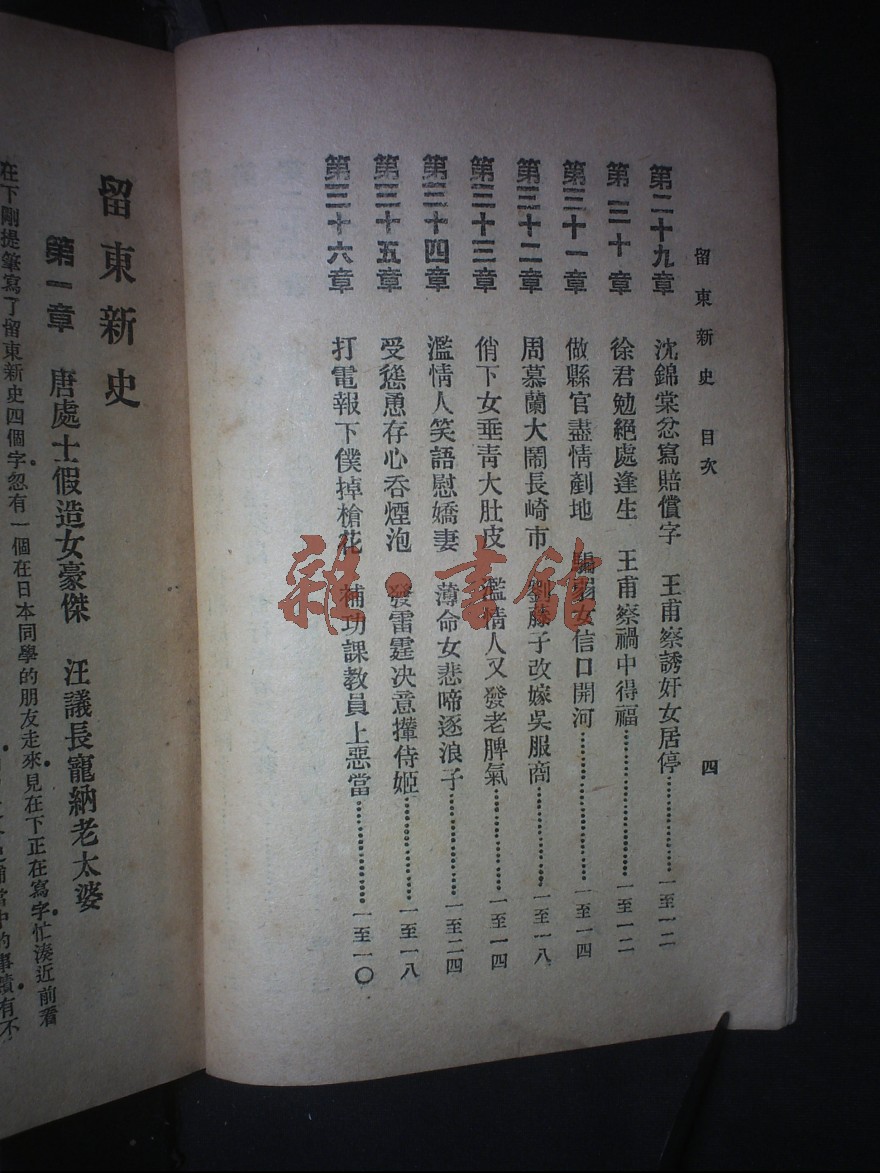 留東新史 目次 四
第二十九章 沈錦棠忿寫賠償字 王甫察誘奸女居停 一至一二
第三十章 徐君勉絕處逢生 王甫察禍中得福 一至一二
第三十一章 做縣官盡情剷地 騙弱女信口開河 一至一四
第三十二章 周慕蘭大鬧長崎市 劉藤子改嫁吳服商 一至一八
第三十三章 俏下女垂靑大肚皮 濫情人又發老脾氣 一至一四
第三十四章 濫情人笑語慰嬌妻 薄命女悲啼逐浪子 一至二四
第三十五章 受慫恿存心吞煙泡 發雷霆決意攆侍姬 一至一八
第三十六章 打電報下僕掉槍花 補功課敎員上惡當 一至一〇
留東新史
第一章 唐處士假造女豪傑 汪議長寵納老太婆
在下剛提筆寫了留東新史四個字忽有一個在日本同學的朋友走來見在下正在寫字忙湊近前看
當中的事蹟有不
雜·書館